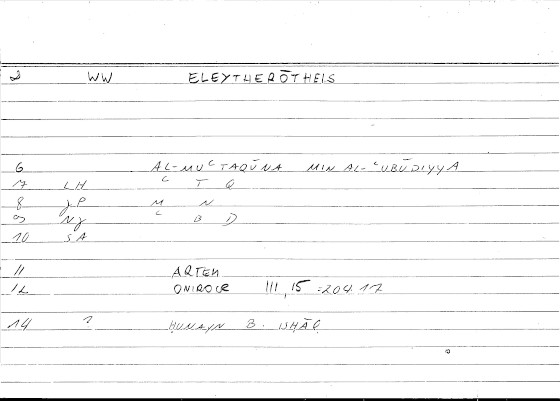 2 WW ELEYTHERŌTHEIS
6 AL-MUʿTAQŪNA MIN AL-ʿUBŪDIYYA
7 LH ʿ T Q
8 JP M N
9 NJ ʿ B D
10 SA
11 ARTEM
12 ONIROCR III,15 = 204.17
14 ? ḤUNAYN B. ISḤĀQ